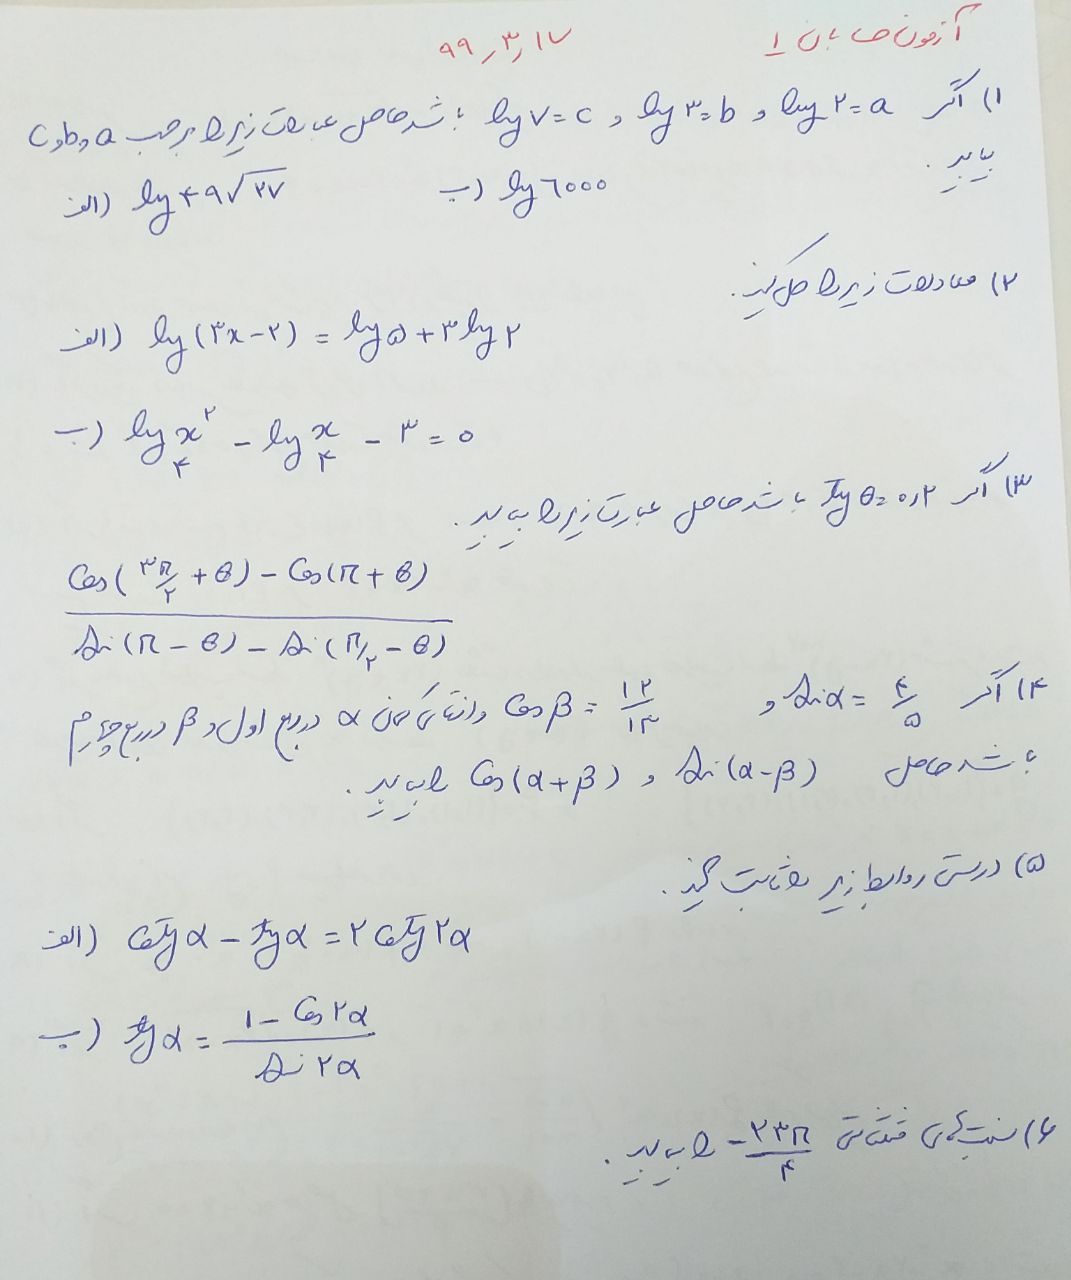 آزمون حسابان ۱ ۹۹٫۳٫۱۷
۱) اگر log ۲ = a و log ۳ = b و log ۷ = c باشد حاصل عبارت زیر را برحسب a و b و c
بیابید.
الف) log ۴۹√۲۷ ب) log ۶۰۰۰
۲) معادلات زیر را حل کنید.
الف) log (۳x − ۲) = log ۵ + ۳ log ۲
ب) log₄ x² − log₄ x − ۳ = ۰
۳) اگر tg θ = ۰٫۲ باشد حاصل عبارت زیر را بیابید.
Cos(۳π/۲ + θ) − Cos(π + θ)
Sin(π − θ) − Sin(π/۲ − θ)
۴) اگر Sin α = ۴/۵ و Cos β = ۱۲/۱۳ و انتهای کمان α در ربع اول و β در ربع چهارم
باشد حاصل Sin(α − β) و Cos(α + β) را بیابید.
۵) درستی روابط زیر را ثابت کنید.
الف) Cotg α − tg α = ۲ Cotg ۲α
ب) tg α = (۱ − Cos ۲α) / Sin ۲α
۶) نسبت‌های مثلثاتی −۲۳π/۴ را بیابید.